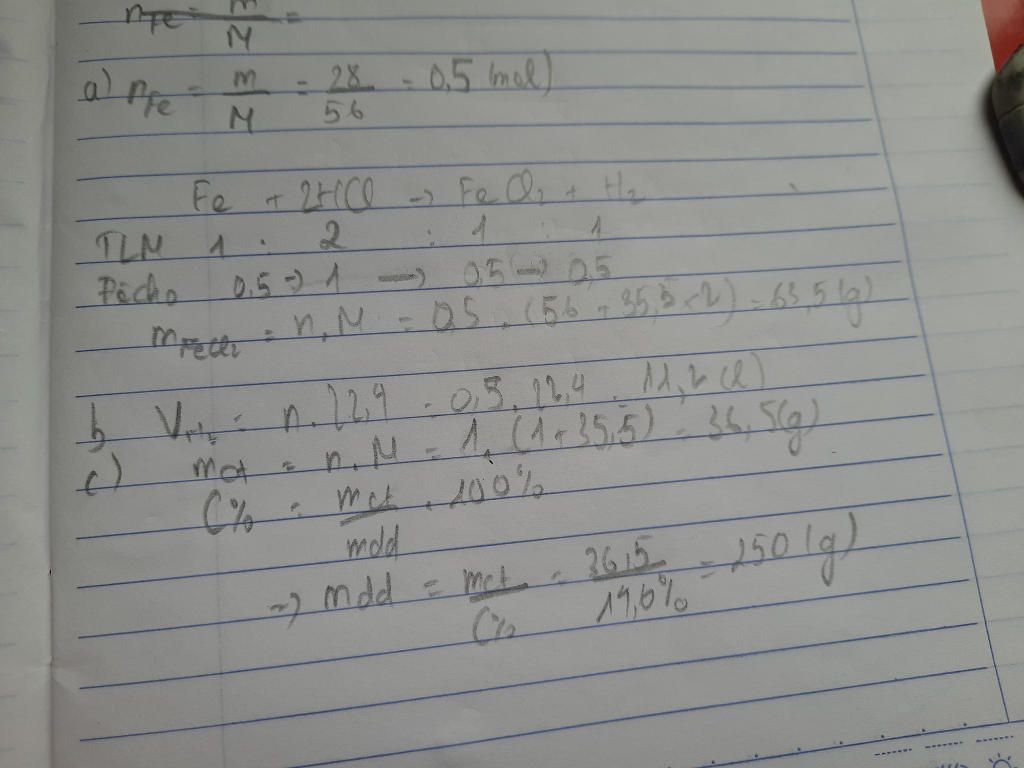 nFe = m/M =
a) nFe = m/M = 28/56 = 0,5 (mol)
Fe + 2HCl → FeCl2 + H2
TLM 1 : 2 : 1 : 1
0,5 → 1 → 0,5 → 0,5
mFeCl2 = n.M = 0,5 . (56 + 35,5 . 2) = 63,5 (g)
b VH2 = n. 22,4 = 0,5. 22,4 = 11,2 (l)
c) mct = n.M = 1. (1+35,5) = 36,5(g)
C% = mct/mdd . 100%
→ mdd = mct/C% = 36,5/14,6% = 250 (g)